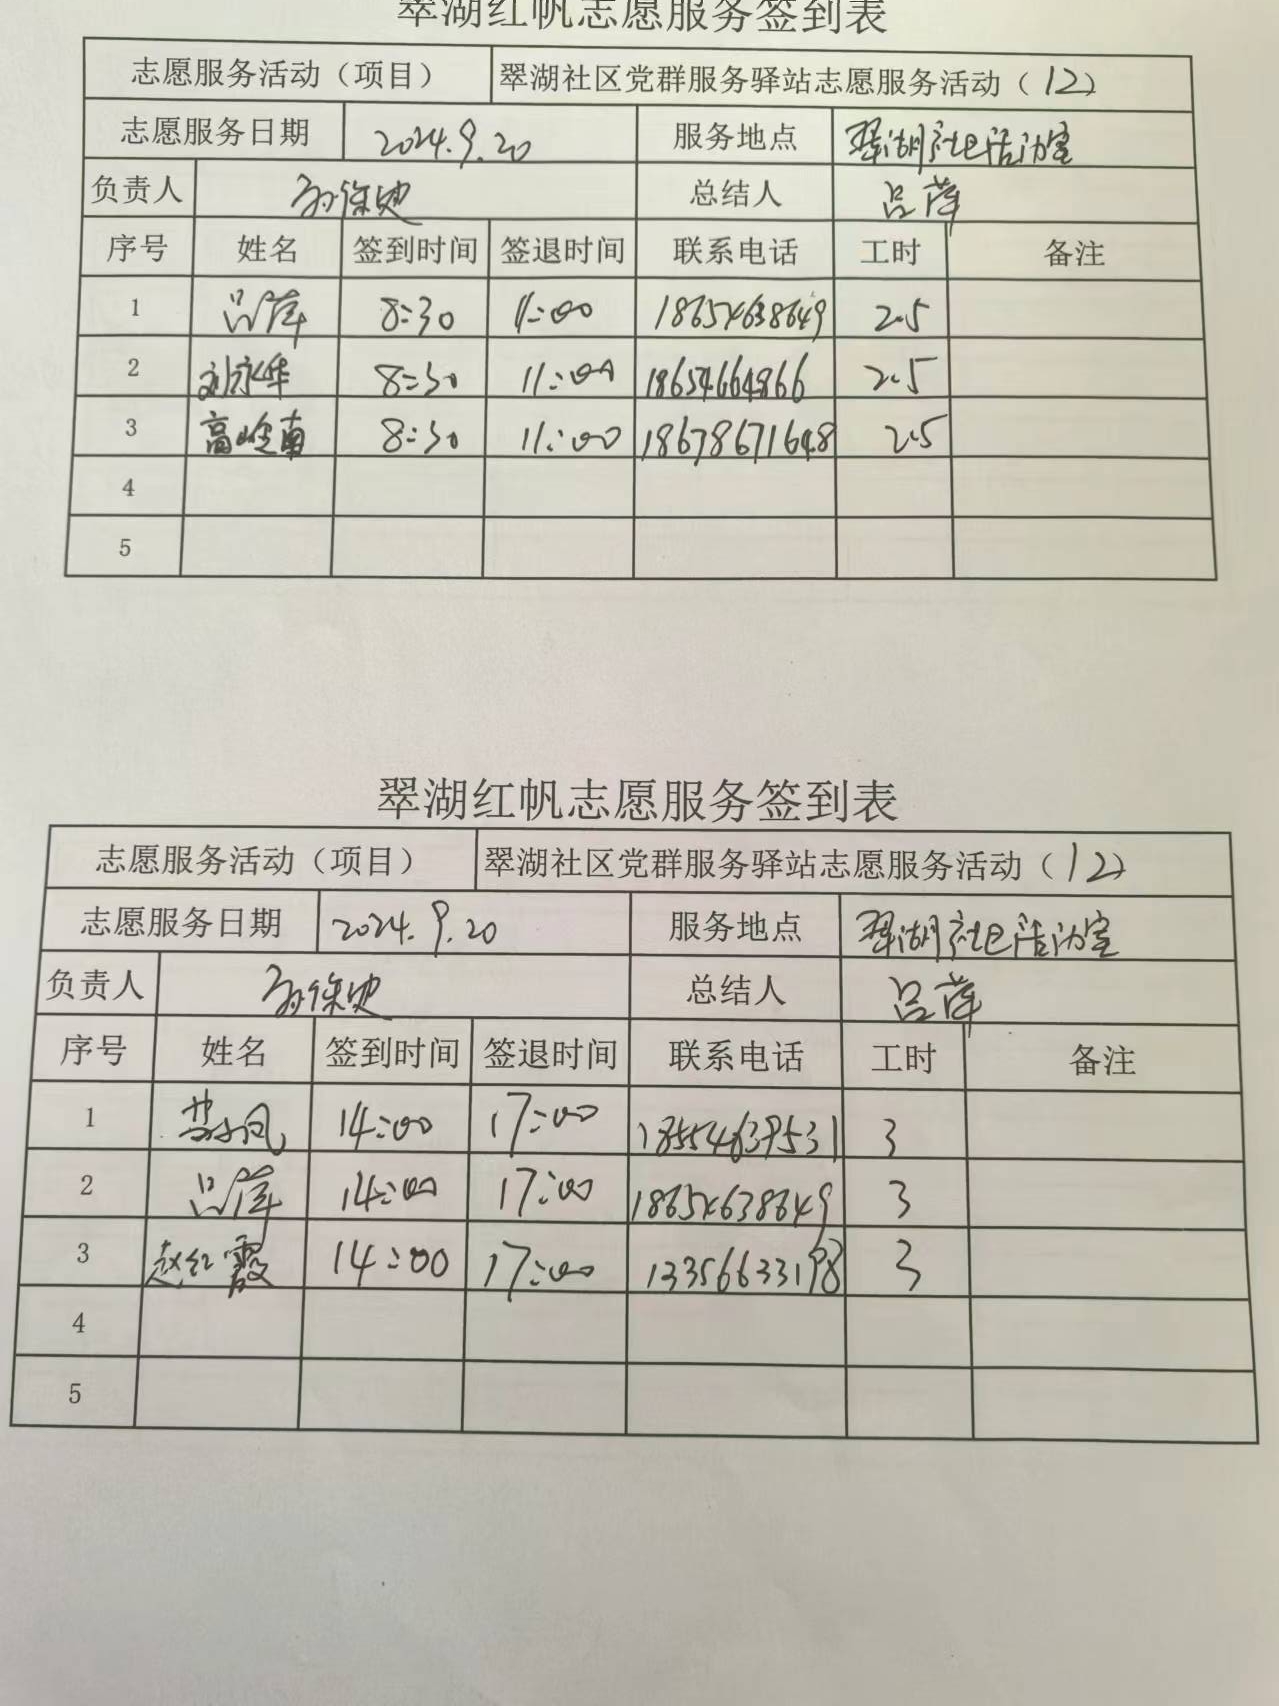 翠湖红帆志愿服务签到表
志愿服务活动（项目） 翠湖社区党群服务驿站志愿服务活动（12）
志愿服务日期 2024.9.20 服务地点 翠湖社区活动室
负责人 总结人 吕萍
序号 姓名 签到时间 签退时间 联系电话 工时 备注
1 吕萍 8:30 11:00 18654638649 2.5
2 刘永华 8:30 11:00 18654664866 2.5
3 高岭南 8:30 11:00 18678671648 2.5
4
5
翠湖红帆志愿服务签到表
志愿服务活动（项目） 翠湖社区党群服务驿站志愿服务活动（12）
志愿服务日期 2024.9.20 服务地点 翠湖社区活动室
负责人 总结人 吕萍
序号 姓名 签到时间 签退时间 联系电话 工时 备注
1 14:00 17:00 18554639531 3
2 吕萍 14:00 17:00 18654638649 3
3 赵红霞 14:00 17:00 13356633198 3
4
5